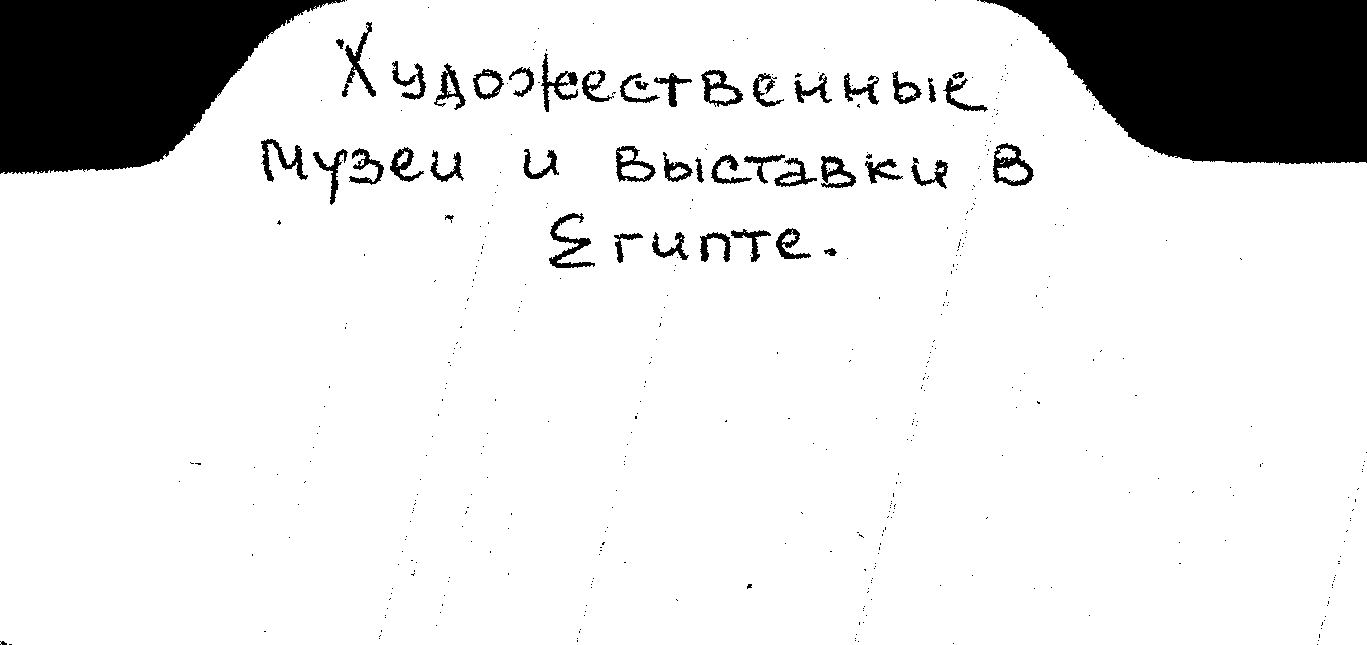 Художественные
музеи и выставки в
Египте.